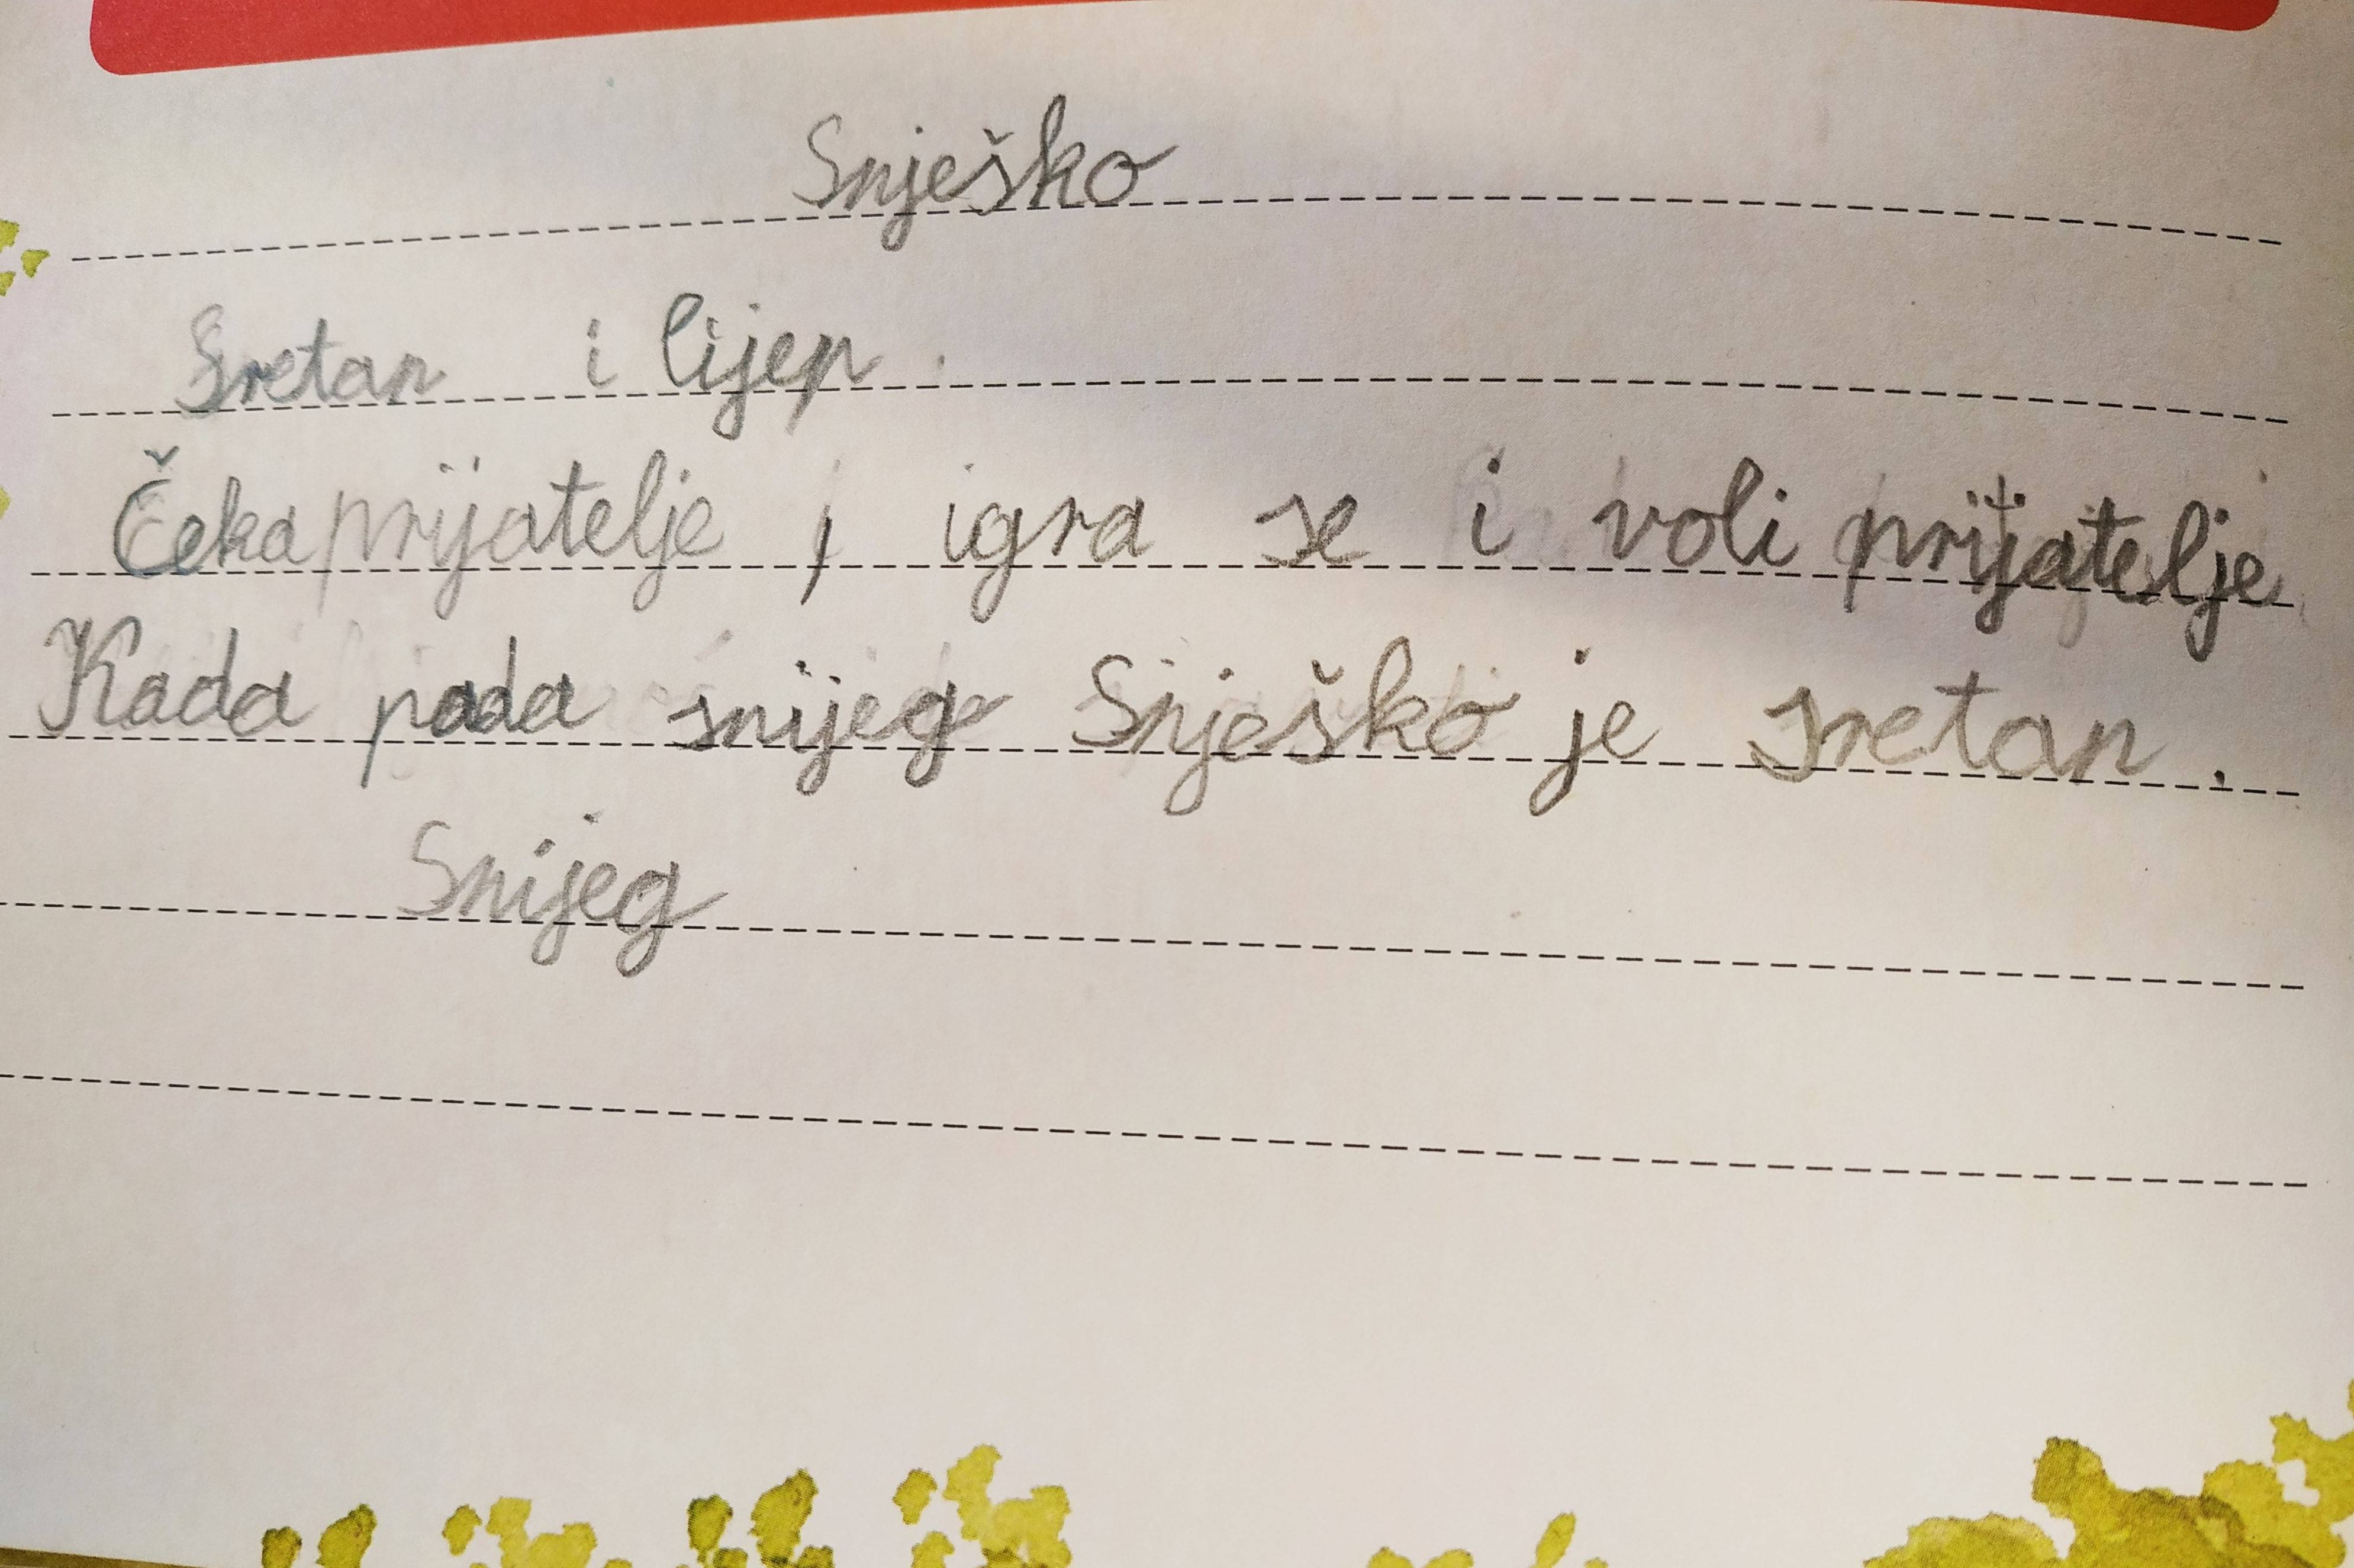 Snješko
Sretan i lijep.
Čeka prijatelje, igra se i voli prijatelje.
Kada pada snijeg Snješko je sretan.
Snijeg